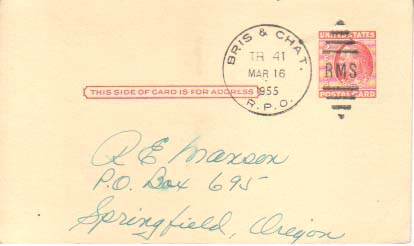 BRIS & CHAT.
TR 41
MAR 16
1955
R.P.O.
UNITED STATES
RMS
POSTAL CARD
THIS SIDE OF CARD IS FOR ADDRESS
R E Manson
P.O. Box 695
Springfield, Oregon